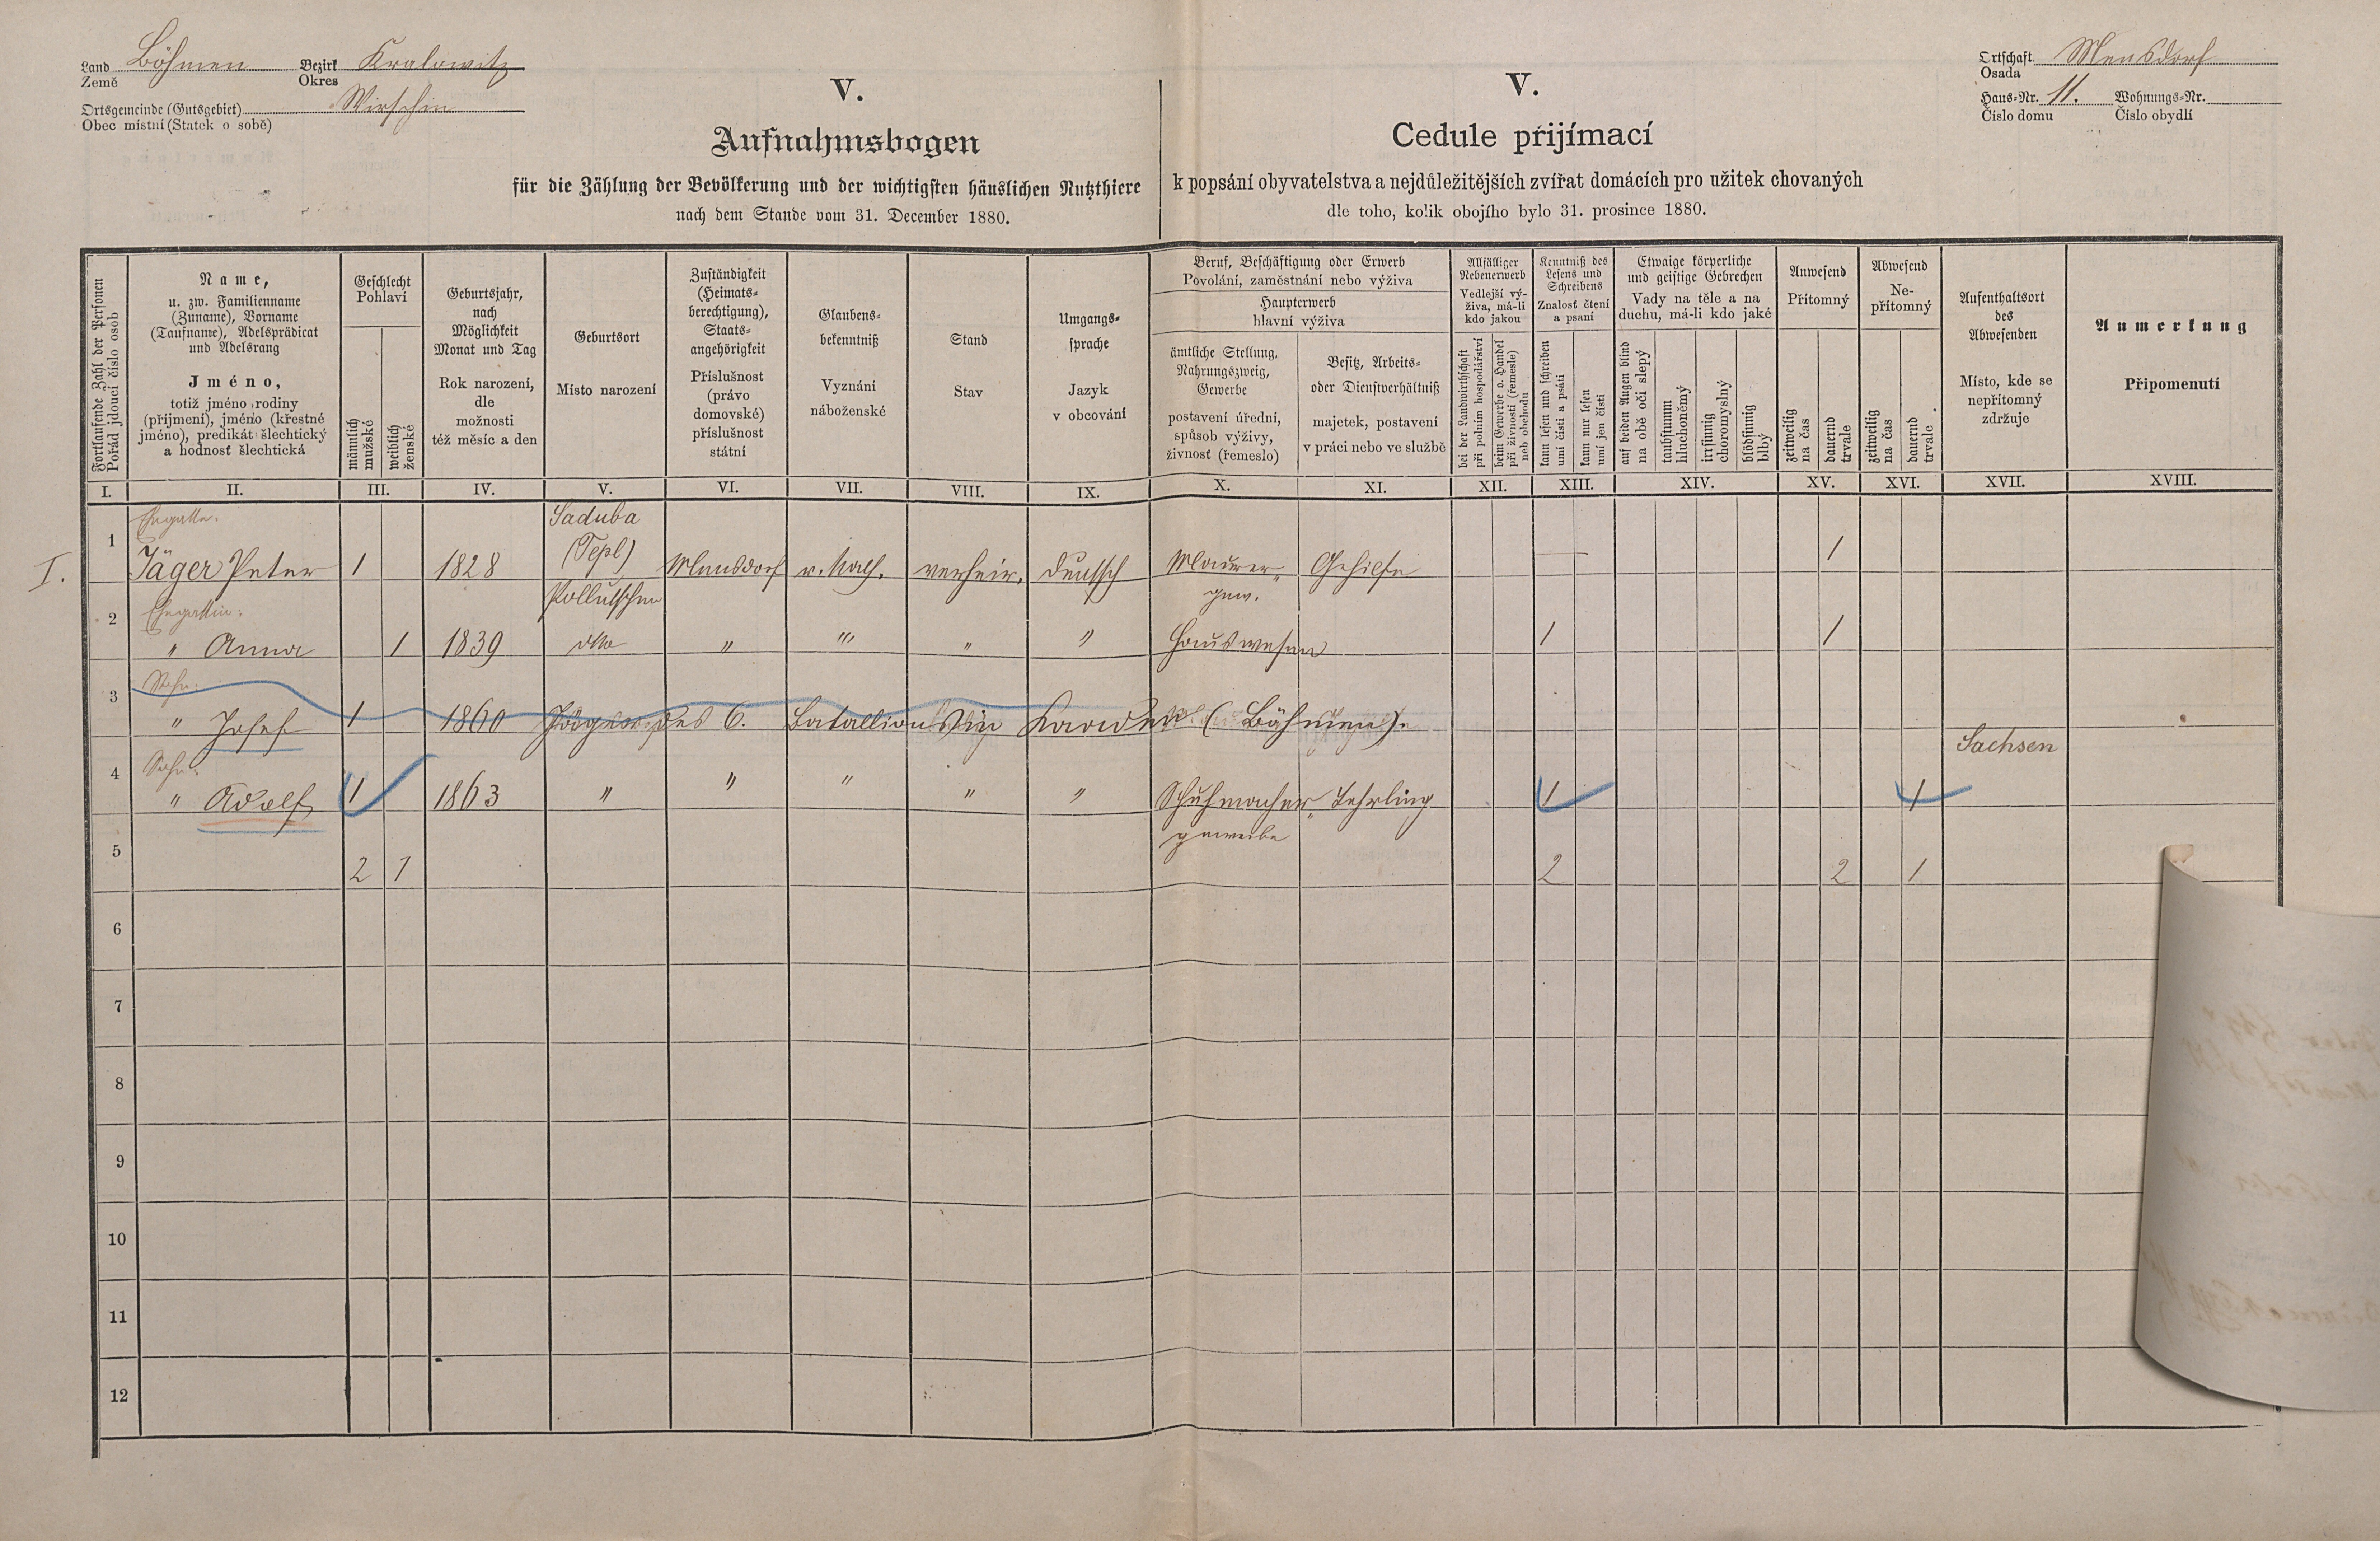 Land Böhmen Bezirk Kralowitz
Země Okres
Ortsgemeinde (Gutsgebiet) Wirschin
Obec místní (Statek o sobě)
Ortschaft Mensdorf
Osada
Haus-Nr. 11. Wohnungs-Nr.
Číslo domu Číslo obydlí
V.
Aufnahmsbogen
für die Zählung der Bevölkerung und der wichtigsten häuslichen Nutzthiere
nach dem Stande vom 31. December 1880.
V.
Cedule přijímací
k popsání obyvatelstva a nejdůležitějších zvířat domácích pro užitek chovaných
dle toho, kolik obojího bylo 31. prosince 1880.
Fortlaufende Zahl der Personen
Pořád jdoucí číslo osob
Name,
u. zw. Familienname
(Zuname), Vorname
(Taufname), Adelsprädicat
und Adelsrang
Jméno,
totiž jméno rodiny
(příjmení), jméno (křestné
jméno), predikát šlechtický
a hodnost šlechtická
Geschlecht
Pohlaví
männlich
mužské
weiblich
ženské
Geburtsjahr,
nach
Möglichkeit
Monat und Tag
Rok narození,
dle
možnosti
též měsíc a den
Geburtsort
Místo narození
Zuständigkeit
(Heimats-
berechtigung),
Staats-
angehörigkeit
Příslušnost
(právo
domovské)
příslušnost
státní
Glaubens-
bekenntniß
Vyznání
náboženské
Stand
Stav
Umgangs-
sprache
Jazyk
v obcování
Beruf, Beschäftigung oder Erwerb
Povolání, zaměstnání nebo výživa
Haupterwerb
hlavní výživa
ämtliche Stellung,
Nahrungszweig,
Gewerbe
postavení úřední,
spůsob výživy,
živnost (řemeslo)
Besitz, Arbeits-
oder Dienstverhältniß
majetek, postavení
v práci nebo ve službě
Allfälliger
Nebenerwerb
Vedlejší vý-
živa, má-li
kdo jakou
bei der Landwirthschaft
při polním hospodářství
beim Gewerbe o. Handel
při živnosti (řemesle)
neb obchodu
Kenntniß des
Lesens und
Schreibens
Znalost čtení
a psaní
kann lesen und schreiben
umí čísti a psáti
kann nur lesen
umí jen čísti
Etwaige körperliche
und geistige Gebrechen
Vady na těle a na
duchu, má-li kdo jaké
auf beiden Augen blind
na obě oči slepý
taubstumm
hluchoněmý
irrsinnig
choromyslný
blödsinnig
blbý
Anwesend
Přítomný
zeitweilig
na čas
dauernd
trvale
Abwesend
Ne-
přítomný
zeitweilig
na čas
dauernd
trvale
Aufenthaltsort
des
Abwesenden
Místo, kde se
nepřítomný
zdržuje
Anmerkung
Připomenutí
I. II. III. IV. V. VI. VII. VIII. IX. X. XI. XII. XIII. XIV. XV. XVI. XVII. XVIII.
Ehegatte: Saduba
I. 1 Jäger Peter 1 1828 (Tepl) Mensdorf r. kath. verheir. deutsch Maurer- Gehilfe 1
gew.
Ehegattin:
2 " Anna 1 1839 dtto " "" " " Hauswesen 1 1
Sohn:
3 " Josef 1 1860 Jäger des 6. Batallions in (Böhmen).
Sohn: Sachsen
4 " Adolf 1 1863 " " " " " Schuhmacher " Lehrling 1 1
gewerbe
5 2 1 2 2 1
6
7
8
9
10
11
12